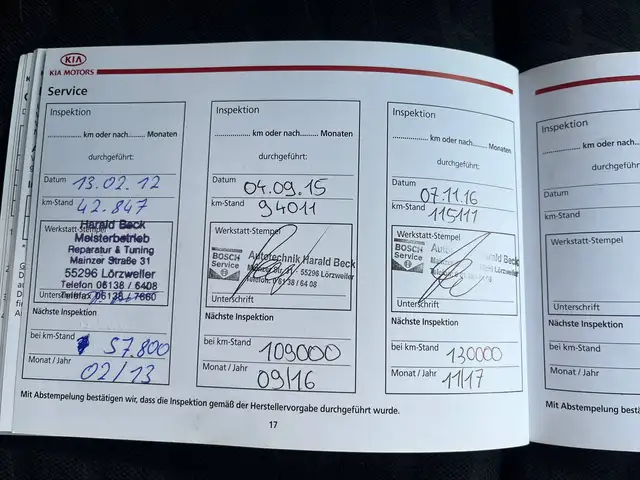 KIA
KIA MOTORS
Service
Inspektion
.................. km oder nach......... Monaten
durchgeführt:
Datum 13.02.12
km-Stand 42.847
Werkstatt-Stempel
Harald Beck
Meisterbetrieb
Reparatur & Tuning
Mainzer Straße 31
55296 Lörzweiler
Telefon 06138 / 6408
Telefax 06138 / 7660
Unterschrift
Nächste Inspektion
bei km-Stand 57.800
Monat / Jahr 02/13
Inspektion
.................. km oder nach......... Monaten
durchgeführt:
Datum 04.09.15
km-Stand 94011
Werkstatt-Stempel
BOSCH
Service
Autotechnik Harald Beck
Mainzer Str. 31 55296 Lörzweiler
Telefon 06138 / 64 08
Unterschrift
Nächste Inspektion
bei km-Stand 109000
Monat / Jahr 09/16
Inspektion
.................. km oder nach......... Monaten
durchgeführt:
Datum 07.11.16
km-Stand 115111
Werkstatt-Stempel
BOSCH
Service
Beck
Unterschrift
Nächste Inspektion
bei km-Stand 130000
Monat / Jahr 11/17
Mit Abstempelung bestätigen wir, dass die Inspektion gemäß der Herstellervorgabe durchgeführt wurde.
17
Inspektion
.................. km oder nach
durchgeführt
Datum
km-Stand
Werkstatt-Stempel
Unterschrift
Nächste Inspektion
bei km-Stand
Monat / Jahr
Mit Abstempelung bestä